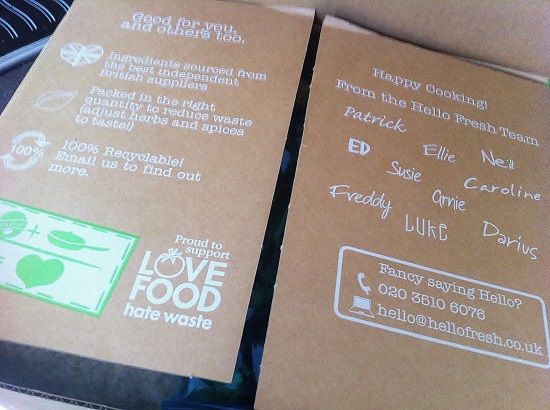 Good for you,
and others too.
Ingredients sourced from
the best independent
British suppliers
Packed in the right
quantity to reduce waste
(adjust herbs and spices
to taste!)
100%
100% Recyclable!
Email us to find out
more.
Proud to
support
LOVE
FOOD
hate waste
Happy Cooking!
From the Hello Fresh Team
Patrick
ED Ellie Neil
Susie Caroline
Freddy Arnie
LUKE Darius
Fancy saying Hello?
020 3510 6076
hello@hellofresh.co.uk